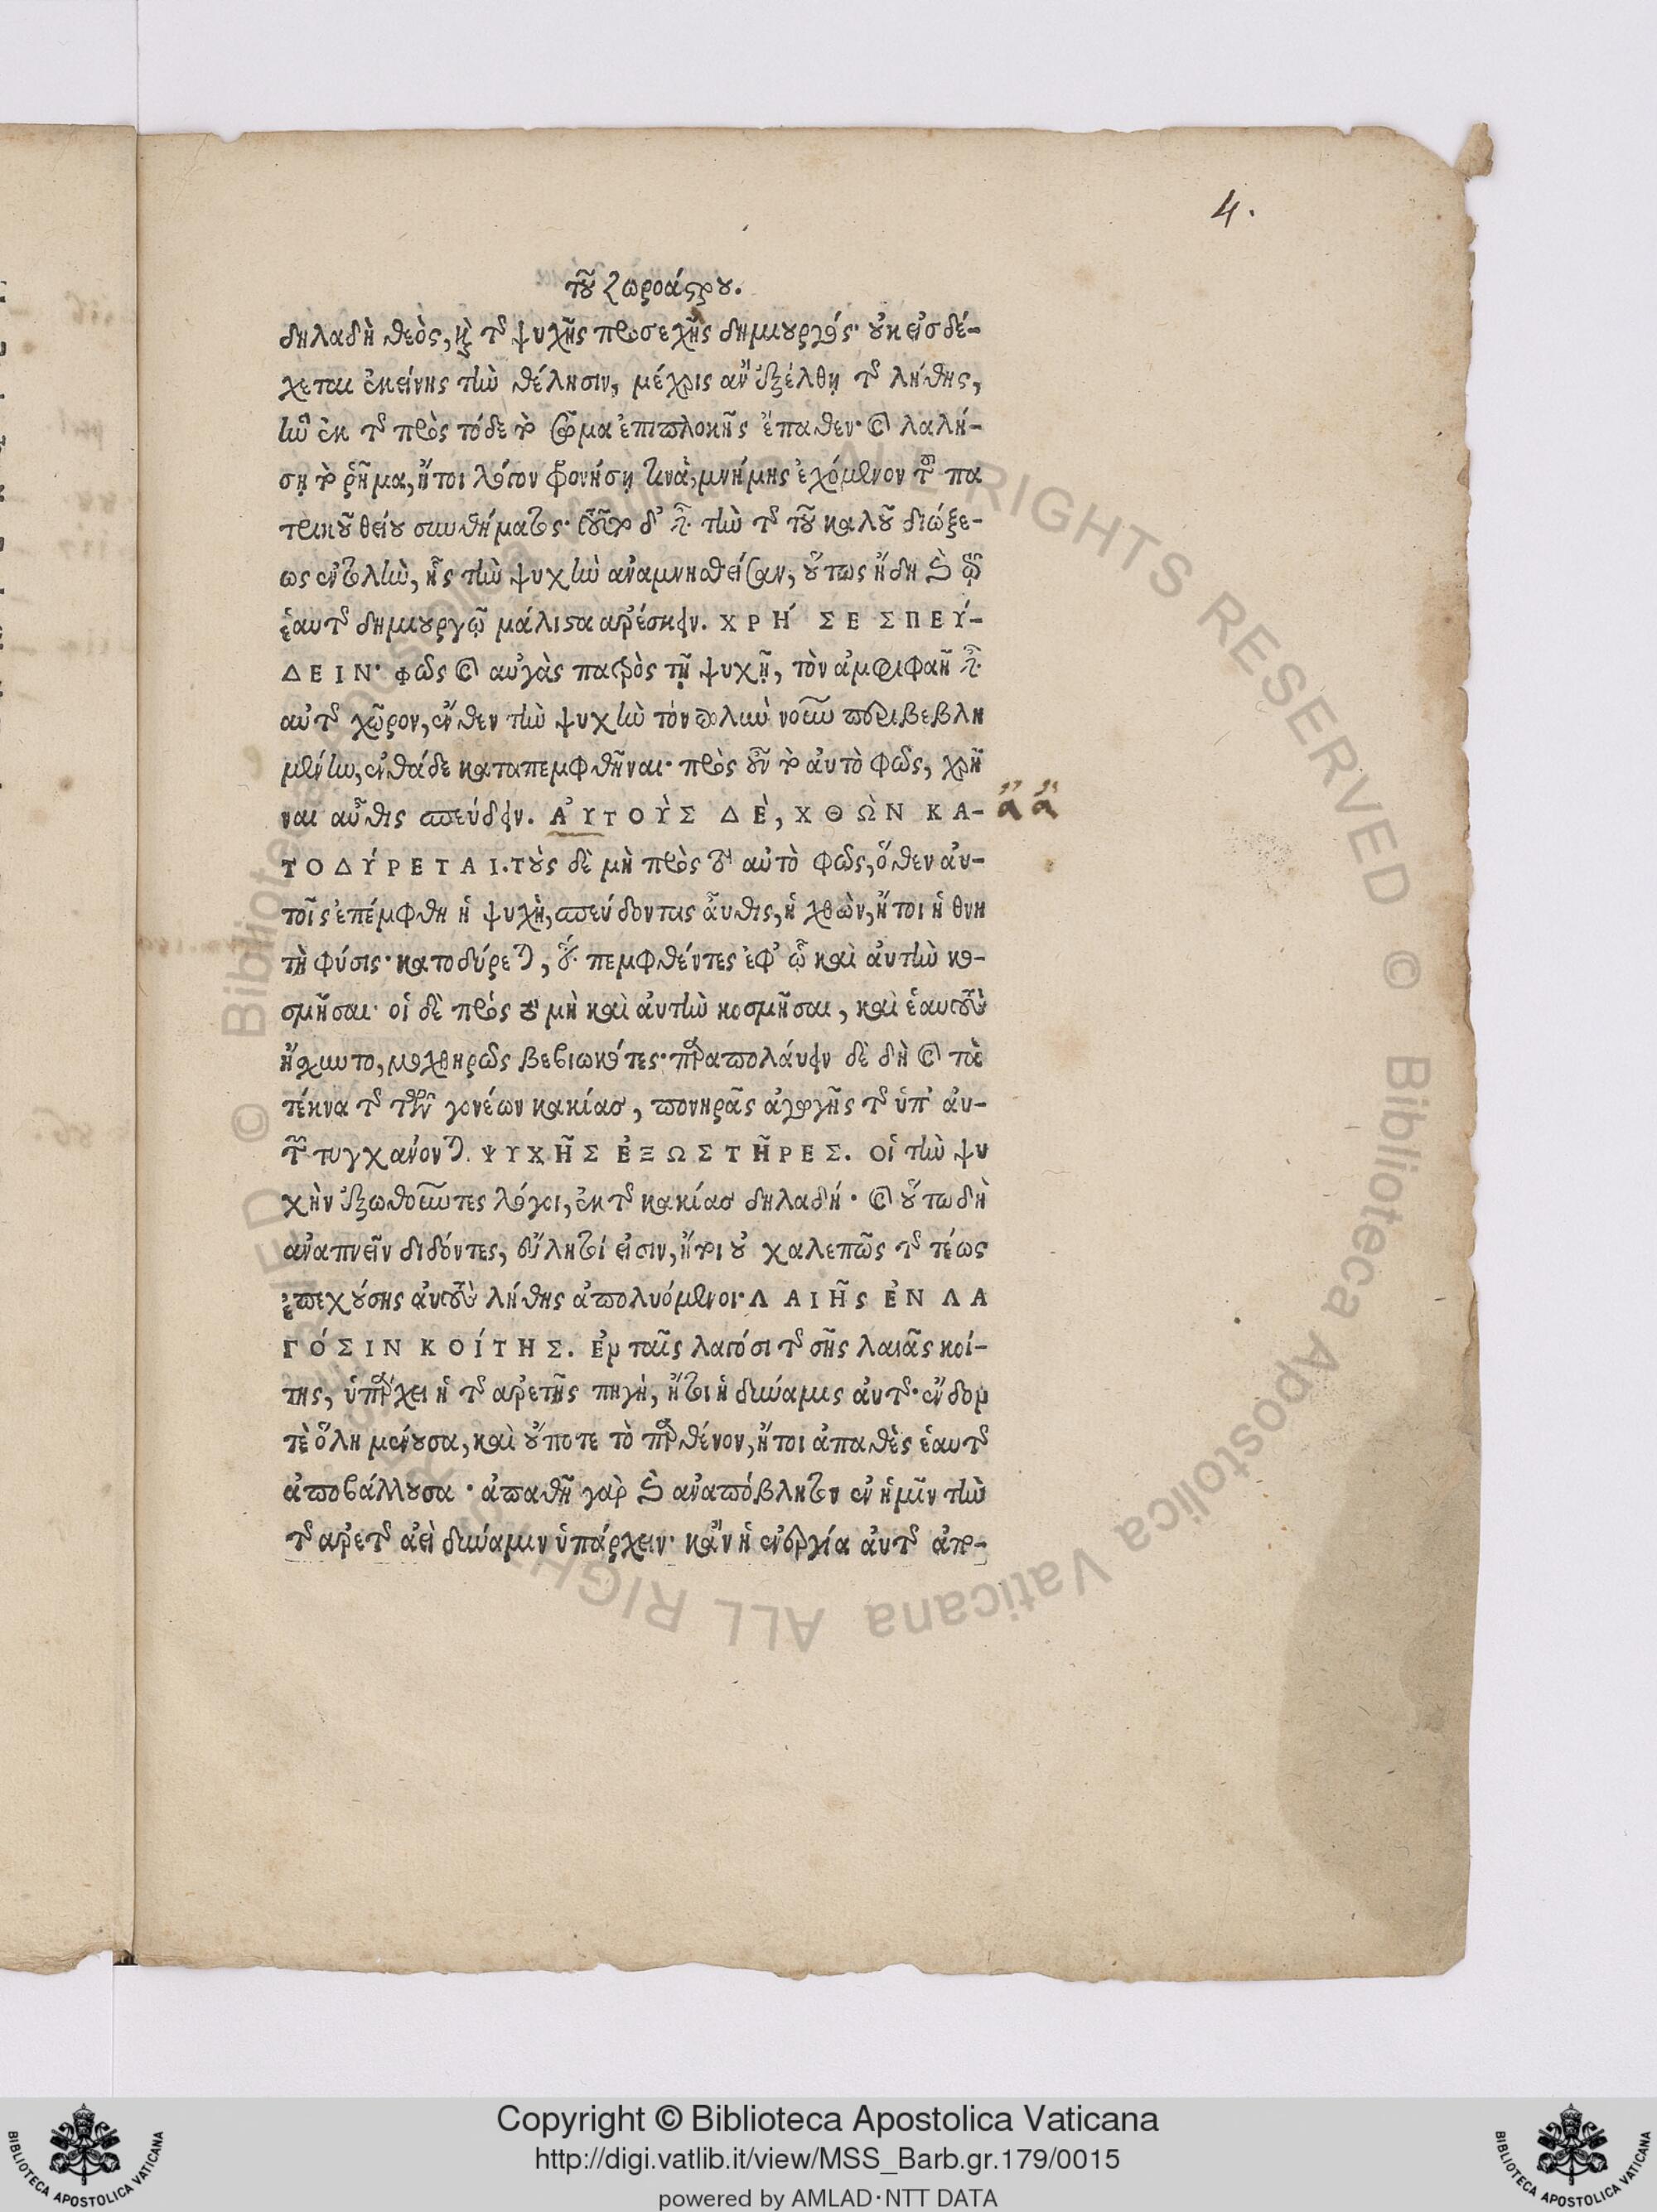 4.
τοῦ Ζωροάστρου.
δηλαδὴ θεὸς, καὶ τῆς ψυχῆς προσεχὴς δημιουργός· οὐκ εἰσδέ-
χεται ἐκείνης τὴν θέλησιν, μέχρις ἂν ἐξέλθῃ τῆς λήθης,
ἣν ἐκ τῆς πρὸς τόδε τὸ σῶμα ἐπιπλοκῆς ἔπαθεν· καὶ λαλή-
σῃ τὸ ῥῆμα, ἤτοι λόγον φονήσῃ τινὰ, μνήμης ἐχόμενον τοῦ πα
τρικοῦ θείου συνθήματος· τοῦτο δ' ἐστὶ τὴν τῆς τοῦ καλοῦ διώξε-
ως ἐντολὴν, ἧς τὴν ψυχὴν ἀναμνησθεῖσαν, οὕτως ἤδη καὶ τῷ
ἑαυτῆς δημιουργῷ μάλιστα ἀρέσκειν. ΧΡΉ ΣΕ ΣΠΕΎ-
ΔΕΙΝ· φῶς καὶ αὐγὰς πατρὸς τῇ ψυχῇ, τὸν ἀμφιφαῆ ἐστὶ
αὐτῆς χῶρον, ἔνθεν τὴν ψυχὴν τὸν πολὺν νοῦν περιβεβλη
μένην, ἐνθάδε καταπεμφθῆναι· πρὸς οὖν τὸ αὐτὸ φῶς, χρῆ
ναι αὖθις σπεύδειν. ΑὐΤΟῪΣ ΔῈ, ΧΘῺΝ ΚΑ-
ἂ ἂ
ΤΟΔΎΡΕΤΑΙ. τοὺς δὲ μὴ πρὸς τὸ αὐτὸ φῶς, ὅθεν αὐ-
τοῖς ἐπέμφθη ἡ ψυχὴ, σπεύδοντας αὖθις, ἡ χθὼν, ἤτοι ἡ θνη
τὴ φύσις· κατοδύρεται, οἳ πεμφθέντες ἐφ' ᾧ καὶ αὐτὴν κο-
σμῆσαι· οἱ δὲ πρὸς τὸ μὴ καὶ αὐτὴν κοσμῆσαι, καὶ ἑαυτοὺς
ᾔσχυντο, μοχθηρῶς βεβιωκότες· παραπολάυειν δὲ δὴ καὶ τὰ
τέκνα τῆς τῶν γονέων κακίας, πονηρᾶς ἀγωγῆς τῆς ὑπ' αὐ-
τῶν τυγχάνοντα. ΨΥΧῆΣ ἘΞΩΣΤῆΡΕΣ. Οἱ τὴν ψυ
χὴν ἐξωθοῦντες λόγοι, ἐκ τῆς κακίας δηλαδή· καὶ οὕτω δὴ
ἀναπνεῖν διδόντες, εὔλητοί εἰσιν, ἤτοι οὐ χαλεπῶς τῆς τέως
ἐπεχούσης αὐτοὺς λήθης ἀπολυόμενοι· ΛΑΙῆς ἘΝ ΛΑ
ΓΌΣΙΝ ΚΟΊΤΗΣ. Ἐν ταῖς λαγόσι τῆς σῆς λαιᾶς κοί-
της, ὑπάρχει ἡ τῆς ἀρετῆς πηγὴ, ἤτοι ἡ δύναμις αὐτῆς· ἔνδον
τὲ ὅλη μένουσα, καὶ οὔποτε τὸ παρθένον, ἤτοι ἀπαθὲς ἑαυτῆς
ἀποβάλλουσα· ἀπαθῆ γὰρ καὶ ἀναπόβλητον ἐν ἡμῖν τὴν
τῆς ἀρετῆς ἀεὶ δύναμιν ὑπάρχειν· κἂν ἡ ἐνέργεια αὐτῆς ἀπο-
© Biblioteca Apostolica Vaticana ALL RIGHTS RESERVED
Copyright © Biblioteca Apostolica Vaticana
http://digi.vatlib.it/view/MSS_Barb.gr.179/0015
powered by AMLAD·NTT DATA
BIBLIOTECA APOSTOLICA VATICANA
BIBLIOTECA APOSTOLICA VATICANA